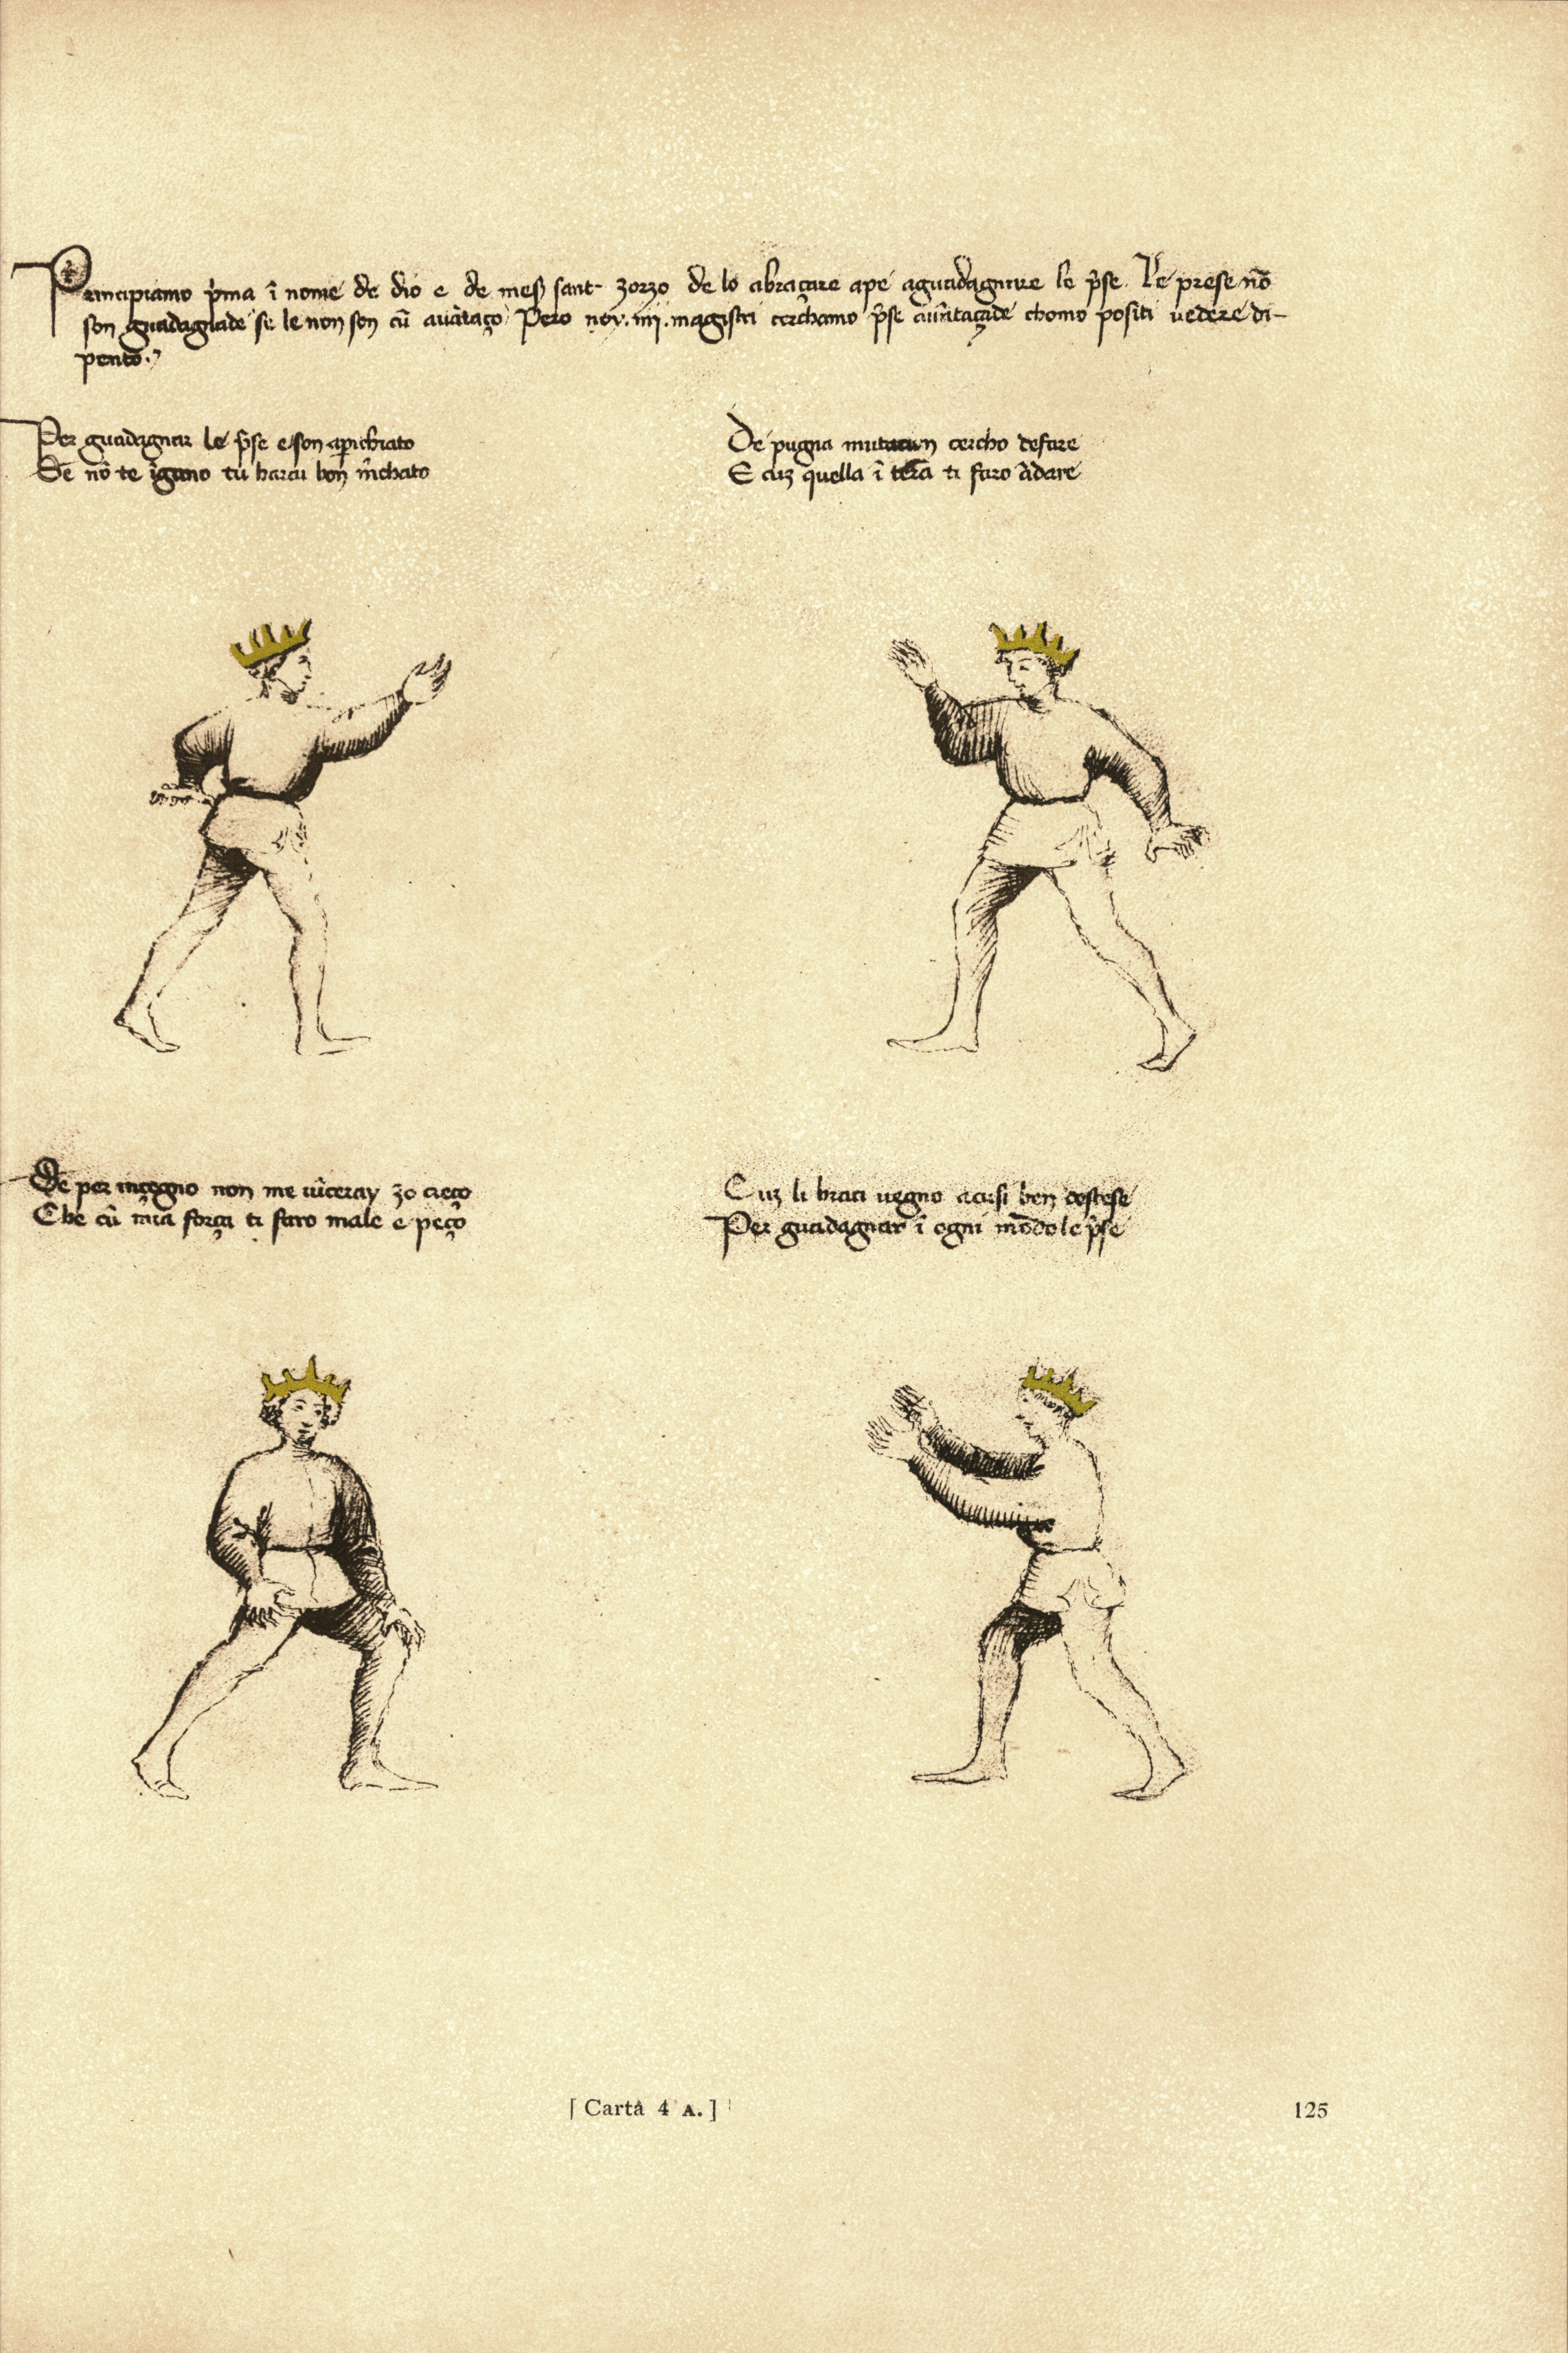 Principiamo p̃ma ĩ nome de dio e de meſſ sant zorzo de lo abraçare a pe a guadagnare le p̃se. Le prese nõ
son guadagnade se le non son cũ auãtaço. Pero noy .iiij. magistri cerchamo p̃se auãtaçade chomo positi vedere di-
pento.
Per guadagnar le p̃se e son aparichiato
Se nõ te ĩgano tu harai bon m̃chato
De pugna mutacion cercho de fare
E cuz quella ĩ terã ti faro ãdare
Se per inçegno non me uĩceray zo creço
Che cũ mia força ti faro male e peço
Cuz li braci uegno acusi ben destese
Per guadagnar ĩ ogni mõdo le p̃se
[ Carta 4 A. ]
125